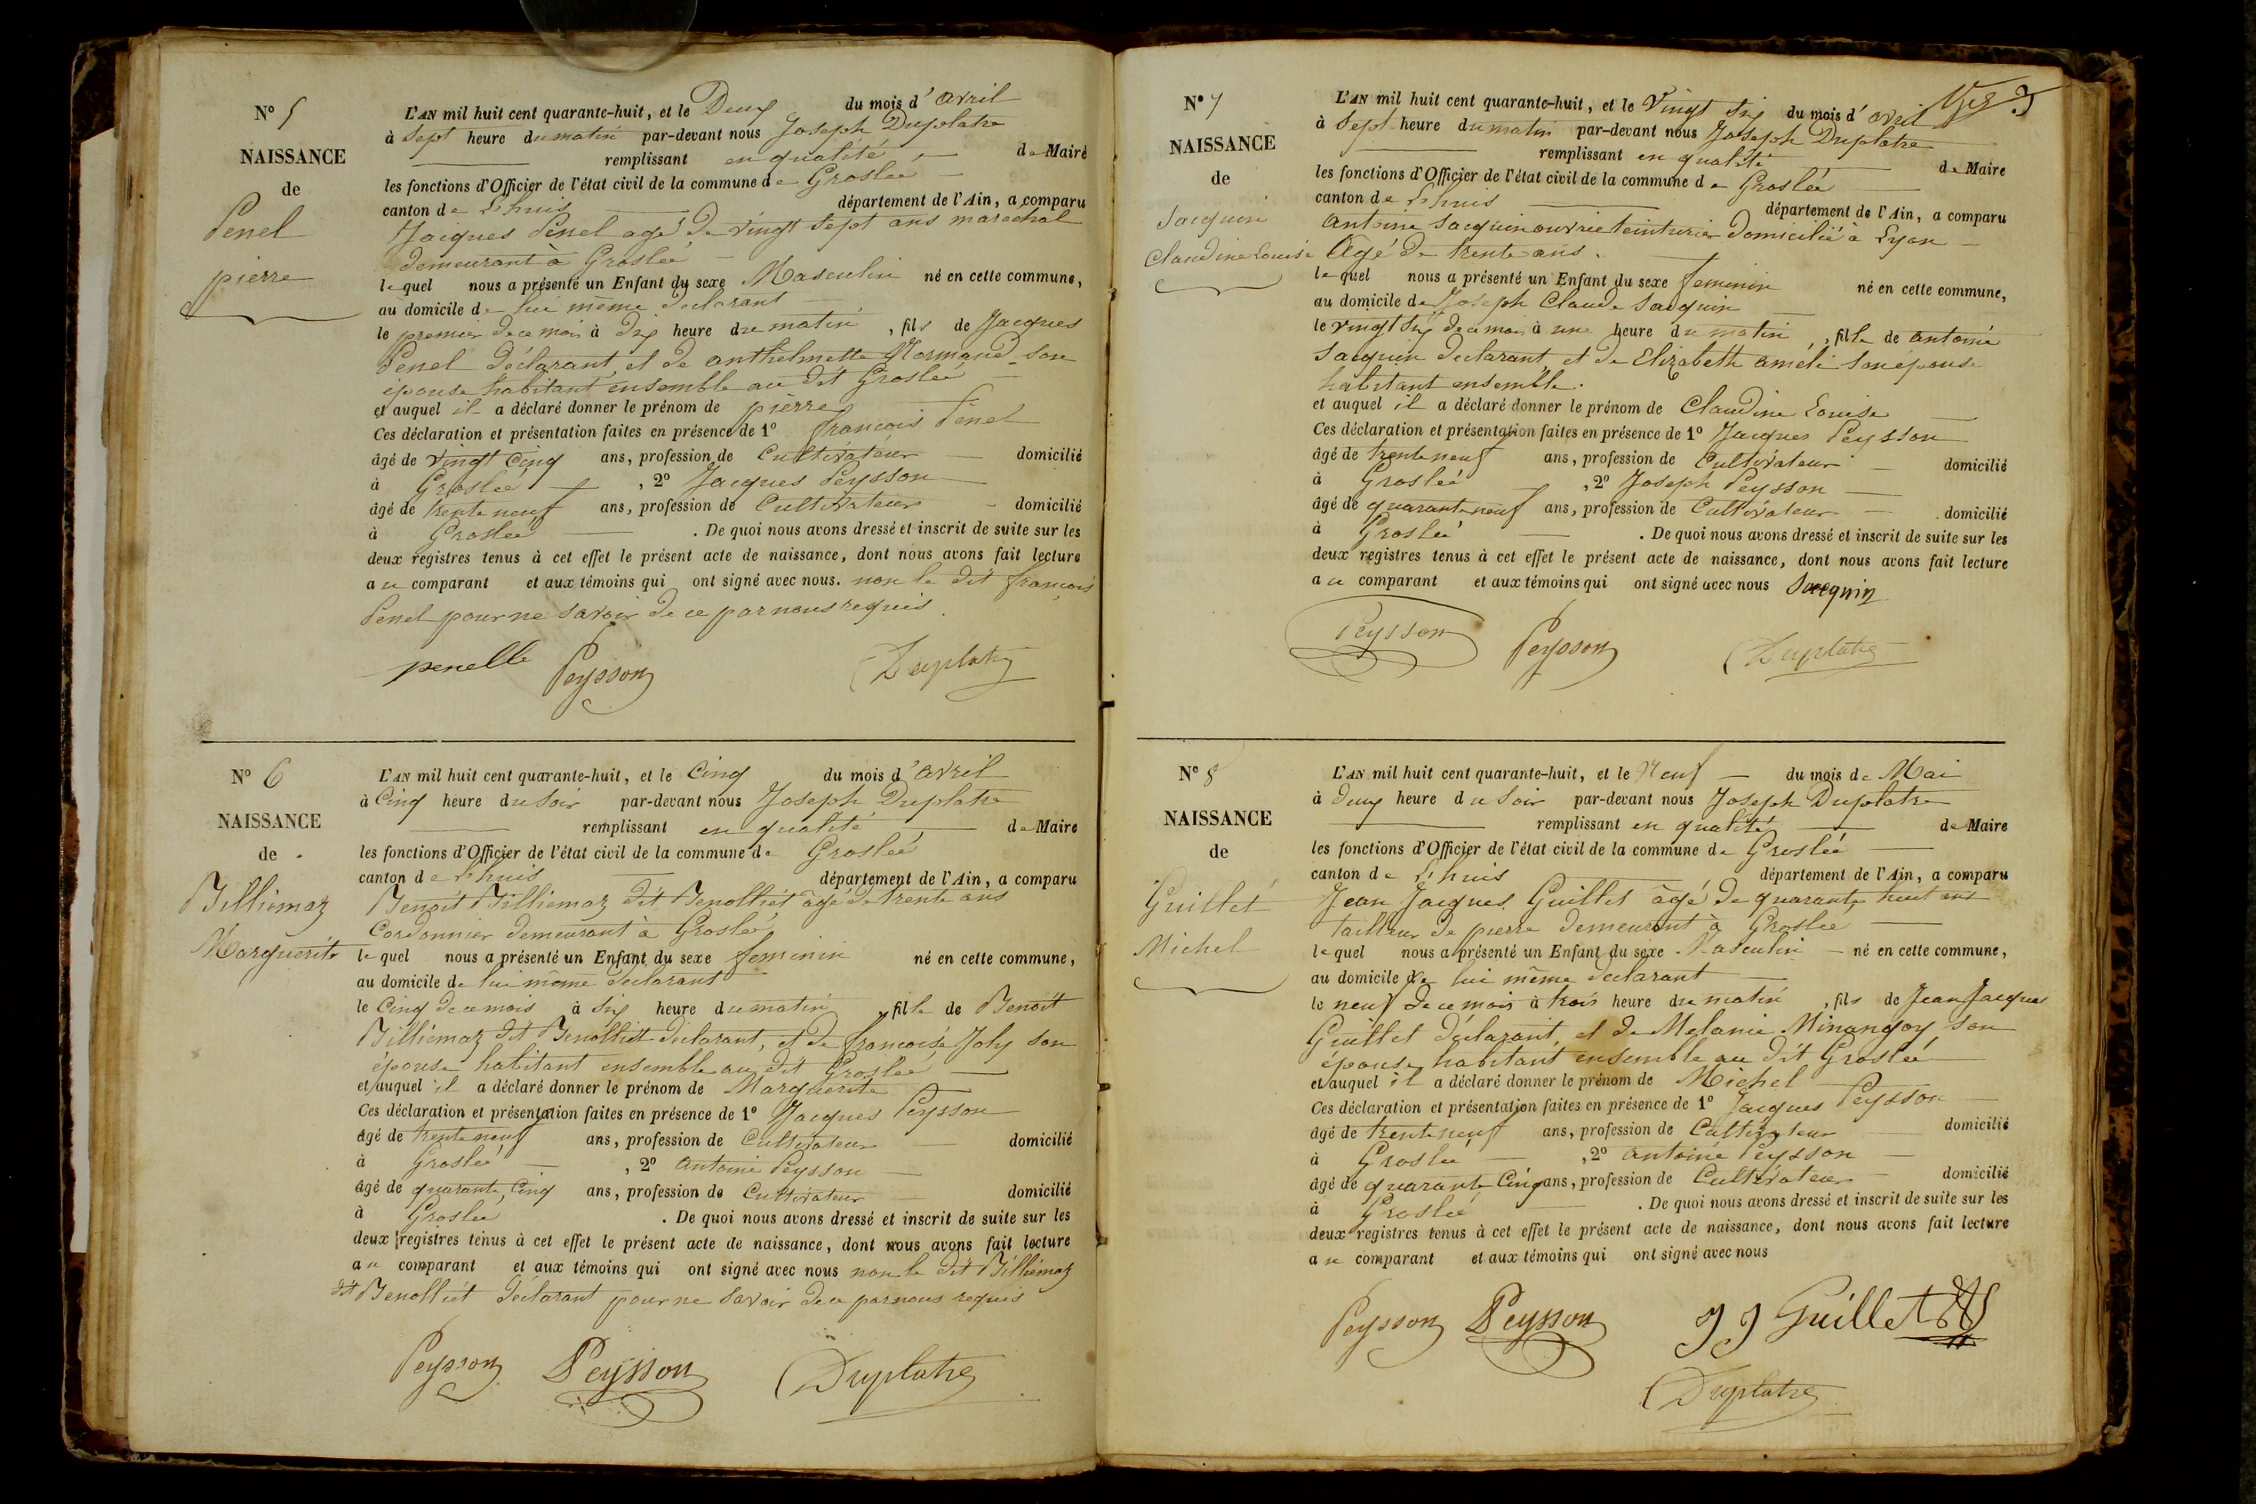 N° 5
NAISSANCE
de
Penel
pierre
L'AN mil huit cent quarante-huit, et le Deux du mois d'avril
à Sept heure du matin par-devant nous Joseph Duplatre
remplissant en qualité de Maire
les fonctions d'Officier de l'état civil de la commune de Groslée
canton de L'huis département de l'Ain, a comparu
Jacques Penel agé de vingt Sept ans marechal
demeurant à Groslée
lequel nous a présenté un Enfant du sexe Masculin né en cette commune,
au domicile de lui même declarant
le premier de ce mois à dix heure du matin, fils de Jacques
Penel déclarant, et de anthelmette son
épouse habitant ensemble au dit Groslée
et auquel il a déclaré donner le prénom de pierre
Ces déclaration et présentation faites en présence de 1° francois Penel
âgé de vingt Cinq ans, profession de Cultivateur domicilié
à Groslée, 2° Jacques Peysson
âgé de trente neuf ans, profession de Cultivateur domicilié
à Groslée. De quoi nous avons dressé et inscrit de suite sur les
deux registres tenus à cet effet le présent acte de naissance, dont nous avons fait lecture
au comparant et aux témoins qui ont signé avec nous. non le dit francois
Penel pour ne savoir de ce par nous requis.
penelle Peysson Duplatre
N° 6
NAISSANCE
de
Billiémaz
Marguerite
L'AN mil huit cent quarante-huit, et le Cinq du mois d'avril
à Cinq heure du Soir par-devant nous Joseph Duplatre
remplissant en qualité de Maire
les fonctions d'Officier de l'état civil de la commune de Groslée
canton de L'huis département de l'Ain, a comparu
Benoît Billiémaz dit Benolliet âgé de trente ans
Cordonnier demeurant à Groslée
lequel nous a présenté un Enfant du sexe feminin né en cette commune,
au domicile de lui même declarant
le Cinq de ce mois à Six heure du matin, fille de Benoît
Billiémaz dit Benolliet declarant, et de francoise Joly son
épouse habitant ensemble au dit Groslée
et auquel il a déclaré donner le prénom de Marguerite
Ces déclaration et présentation faites en présence de 1° Jacques Peysson
âgé de trente neuf ans, profession de Cultivateur domicilié
à Groslée, 2° antoine Peysson
âgé de quarante Cinq ans, profession de Cultivateur domicilié
à Groslée. De quoi nous avons dressé et inscrit de suite sur les
deux registres tenus à cet effet le présent acte de naissance, dont nous avons fait lecture
au comparant et aux témoins qui ont signé avec nous non le dit Billiémaz
dit Benolliet déclarant pour ne savoir de ce par nous requis
Peysson Peysson Duplatre
N° 7
NAISSANCE
de
Jacquin
Claudine Louise
L'AN mil huit cent quarante-huit, et le Vingt Six du mois d'avril
à Sept heure du matin par-devant nous Joseph Duplatre
remplissant en qualité de Maire
les fonctions d'Officier de l'état civil de la commune de Groslée
canton de L'huis département de l'Ain, a comparu
antoine Jacquin ouvrie teinturier domicilié à Lyon
Agé de trente ans.
lequel nous a présenté un Enfant du sexe feminin né en cette commune,
au domicile de Joseph Claude Jacquin
le vingt Six de ce mois à une heure du matin, fille de antoine
Jacquin declarant, et de Elizabeth ameli son épouse
habitant ensemble.
et auquel il a déclaré donner le prénom de Claudine Louise
Ces déclaration et présentation faites en présence de 1° Jacques Peysson
âgé de trente neuf ans, profession de Cultivateur domicilié
à Groslée, 2° Joseph Peysson
âgé de quarante neuf ans, profession de Cultivateur domicilié
à Groslée. De quoi nous avons dressé et inscrit de suite sur les
deux registres tenus à cet effet le présent acte de naissance, dont nous avons fait lecture
au comparant et aux témoins qui ont signé avec nous Jacquin
Peysson Peysson Duplatre
N° 8
NAISSANCE
de
Guillet
Michel
L'AN mil huit cent quarante-huit, et le Neuf du mois de Mai
à deux heure du Soir par-devant nous Joseph Duplatre
remplissant en qualité de Maire
les fonctions d'Officier de l'état civil de la commune de Groslée
canton de L'huis département de l'Ain, a comparu
Jean Jacques Guillet âgé de quarante huit ans
tailleur de pierre demeurant à Groslée
lequel nous a présenté un Enfant du sexe Masculin né en cette commune,
au domicile de lui même declarant
le neuf de ce mois à trois heure du matin, fils de Jean Jacques
Guillet déclarant, et de Melanie Minangoy son
épouse habitant ensemble au dit Groslée
et auquel il a déclaré donner le prénom de Michel
Ces déclaration et présentation faites en présence de 1° Jacques Peysson
âgé de trente neuf ans, profession de Cultivateur domicilié
à Groslée, 2° antoine Peysson
âgé de quarante Cinq ans, profession de Cultivateur domicilié
à Groslée. De quoi nous avons dressé et inscrit de suite sur les
deux registres tenus à cet effet le présent acte de naissance, dont nous avons fait lecture
au comparant et aux témoins qui ont signé avec nous
Peysson Peysson JJ Guillet
Duplatre